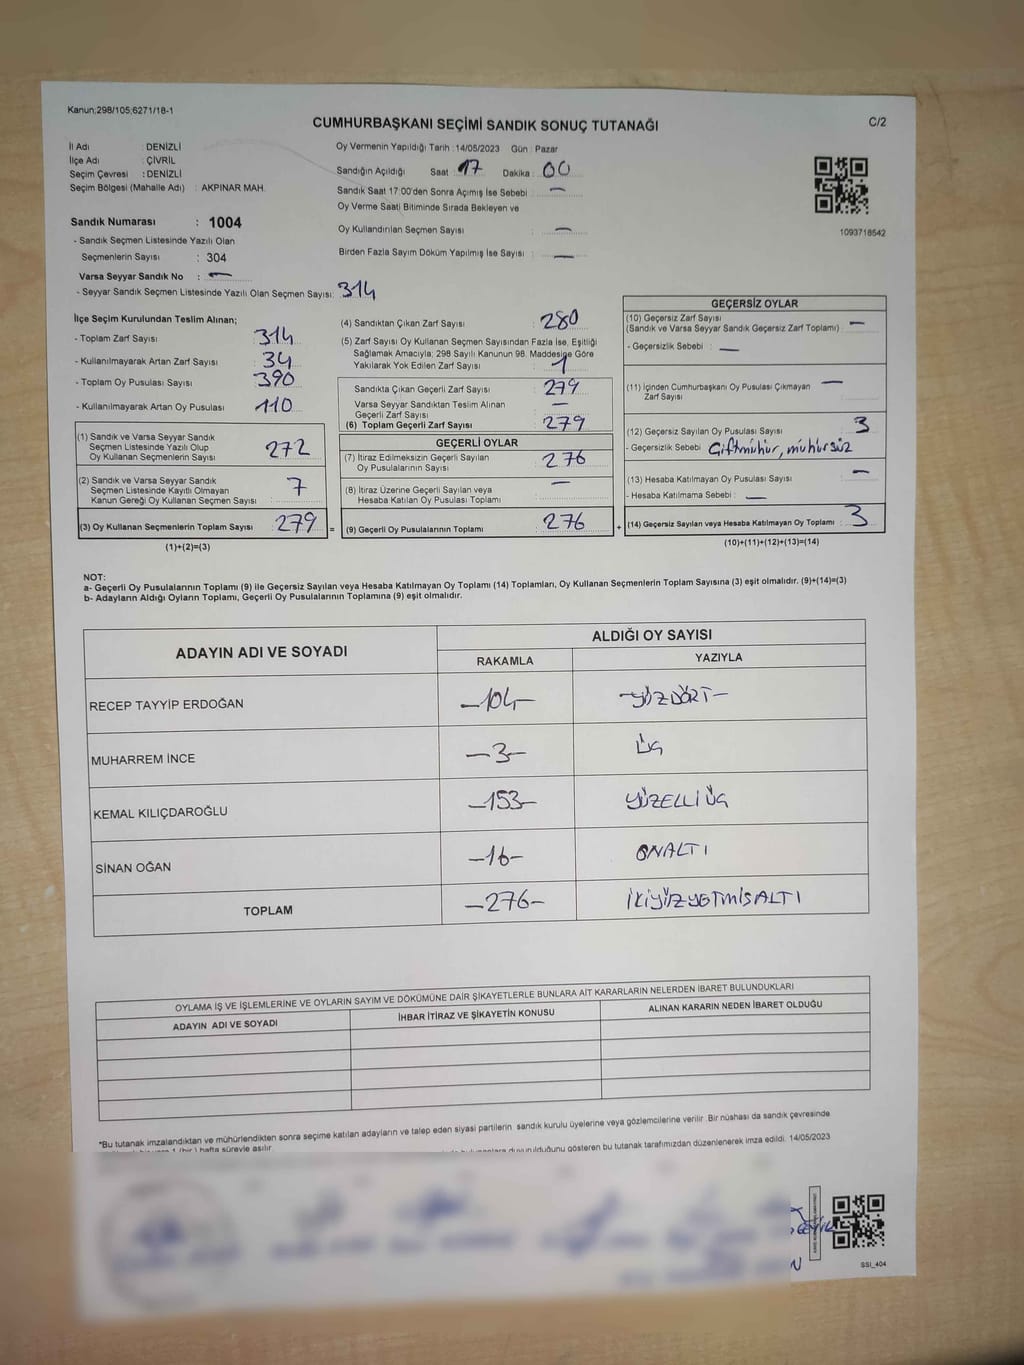 Kanun;298/105;6271/18-1
CUMHURBAŞKANI SEÇİMİ SANDIK SONUÇ TUTANAĞI
C/2
İl Adı : DENİZLİ
İlçe Adı : ÇİVRİL
Seçim Çevresi : DENİZLİ
Seçim Bölgesi (Mahalle Adı) : AKPINAR MAH.
Oy Vermenin Yapıldığı Tarih :14/05/2023 Gün : Pazar
Sandığın Açıldığı Saat : 17 Dakika : 00
Sandık Saat 17:00'den Sonra Açımış İse Sebebi : —
Oy Verme Saati Bitiminde Sırada Bekleyen ve
Oy Kullandırılan Seçmen Sayısı : —
Birden Fazla Sayım Döküm Yapılmış İse Sayısı : —
1093718542
Sandık Numarası : 1004
- Sandık Seçmen Listesinde Yazılı Olan
Seçmenlerin Sayısı : 304
Varsa Seyyar Sandık No : —
- Seyyar Sandık Seçmen Listesinde Yazılı Olan Seçmen Sayısı: 314
İlçe Seçim Kurulundan Teslim Alınan;
- Toplam Zarf Sayısı : 314
- Kullanılmayarak Artan Zarf Sayısı : 34
- Toplam Oy Pusulası Sayısı : 390
- Kullanılmayarak Artan Oy Pusulası : 110
(1) Sandık ve Varsa Seyyar Sandık
Seçmen Listesinde Yazılı Olup
Oy Kullanan Seçmenlerin Sayısı : 272
(2) Sandık ve Varsa Seyyar Sandık
Seçmen Listesinde Kayıtlı Olmayan
Kanun Gereği Oy Kullanan Seçmen Sayısı : 7
(3) Oy Kullanan Seçmenlerin Toplam Sayısı : 279 =
(1)+(2)=(3)
(4) Sandıktan Çıkan Zarf Sayısı : 280
(5) Zarf Sayısı Oy Kullanan Seçmen Sayısından Fazla İse, Eşitliği
Sağlamak Amacıyla; 298 Sayılı Kanunun 98. Maddesine Göre
Yakılarak Yok Edilen Zarf Sayısı : 1
Sandıkta Çıkan Geçerli Zarf Sayısı : 279
Varsa Seyyar Sandıktan Teslim Alınan
Geçerli Zarf Sayısı : —
(6) Toplam Geçerli Zarf Sayısı : 279
GEÇERLİ OYLAR
(7) İtiraz Edilmeksizin Geçerli Sayılan
Oy Pusulalarının Sayısı : 276
(8) İtiraz Üzerine Geçerli Sayılan veya
Hesaba Katılan Oy Pusulası Toplamı : —
(9) Geçerli Oy Pusulalarının Toplamı : 276 +
GEÇERSİZ OYLAR
(10) Geçersiz Zarf Sayısı
(Sandık ve Varsa Seyyar Sandık Geçersiz Zarf Toplamı) : —
- Geçersizlik Sebebi : —
(11) İçinden Cumhurbaşkanı Oy Pusulası Çıkmayan —
Zarf Sayısı
(12) Geçersiz Sayılan Oy Pusulası Sayısı : 3
- Geçersizlik Sebebi : Çiftmühür, mühürsüz
(13) Hesaba Katılmayan Oy Pusulası Sayısı : —
- Hesaba Katılmama Sebebi : —
(14) Geçersiz Sayılan veya Hesaba Katılmayan Oy Toplamı : 3
(10)+(11)+(12)+(13)=(14)
NOT:
a- Geçerli Oy Pusulalarının Toplamı (9) ile Geçersiz Sayılan veya Hesaba Katılmayan Oy Toplamı (14) Toplamları, Oy Kullanan Seçmenlerin Toplam Sayısına (3) eşit olmalıdır. (9)+(14)=(3)
b- Adayların Aldığı Oyların Toplamı, Geçerli Oy Pusulalarının Toplamına (9) eşit olmalıdır.
ADAYIN ADI VE SOYADI
ALDIĞI OY SAYISI
RAKAMLA YAZIYLA
RECEP TAYYİP ERDOĞAN —104— —YÜZDÖRT—
MUHARREM İNCE —3— ÜÇ
KEMAL KILIÇDAROĞLU —153— YÜZELLİÜÇ
SİNAN OĞAN —16— ONALTI
TOPLAM —276— İKİYÜZYETMİŞALTI
OYLAMA İŞ VE İŞLEMLERİNE VE OYLARIN SAYIM VE DÖKÜMÜNE DAİR ŞİKAYETLERLE BUNLARA AİT KARARLARIN NELERDEN İBARET BULUNDUKLARI
ADAYIN ADI VE SOYADI İHBAR İTİRAZ VE ŞİKAYETİN KONUSU ALINAN KARARIN NEDEN İBARET OLDUĞU
*Bu tutanak imzalandıktan ve mühürlendikten sonra seçime katılan adayların ve talep eden siyasi partilerin sandık kurulu üyelerine veya gözlemcilerine verilir. Bir nüshası da sandık çevresinde
1 (bir) hafta süreyle asılır. duyurulduğunu gösteren bu tutanak tarafımızdan düzenlenerek imza edildi. 14/05/2023
SSI_404